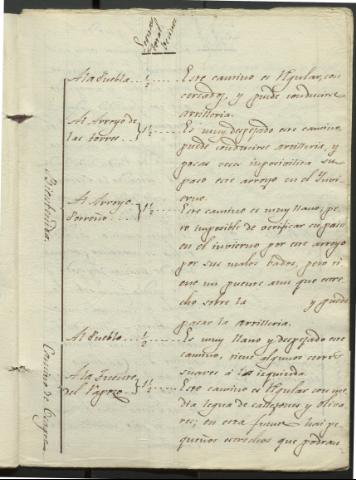 A la Puebla .. ½
Este camino es Regular, con
cercados, y puede conducirse
artilleria.
Al Arroyo de
las torres ... 1½
Es muy despejado este camino,
puede conducirse artilleria, y
pocas veces imposivilita su
paso este arroyo en el Invi-
erno.
Al Arroyo
1½
Este camino es muy llano, pe-
ro imposible de verificar su paso
en el invierno por este arroyo
por sus malos bados, pero ti-
ene un puente aun que estre-
cho sobre la y puede
pasar la artilleria.
Al Pueblo ... ½
Es muy llano y despejado este
camino, tiene algunos cerros
suaves á la izquierda.
A la Fuente
del 1½
Este camino es Regular con me-
dia legua de callejones y oliva-
res; en esta fuente hai pe-
queños estrechos que podran
Camino de